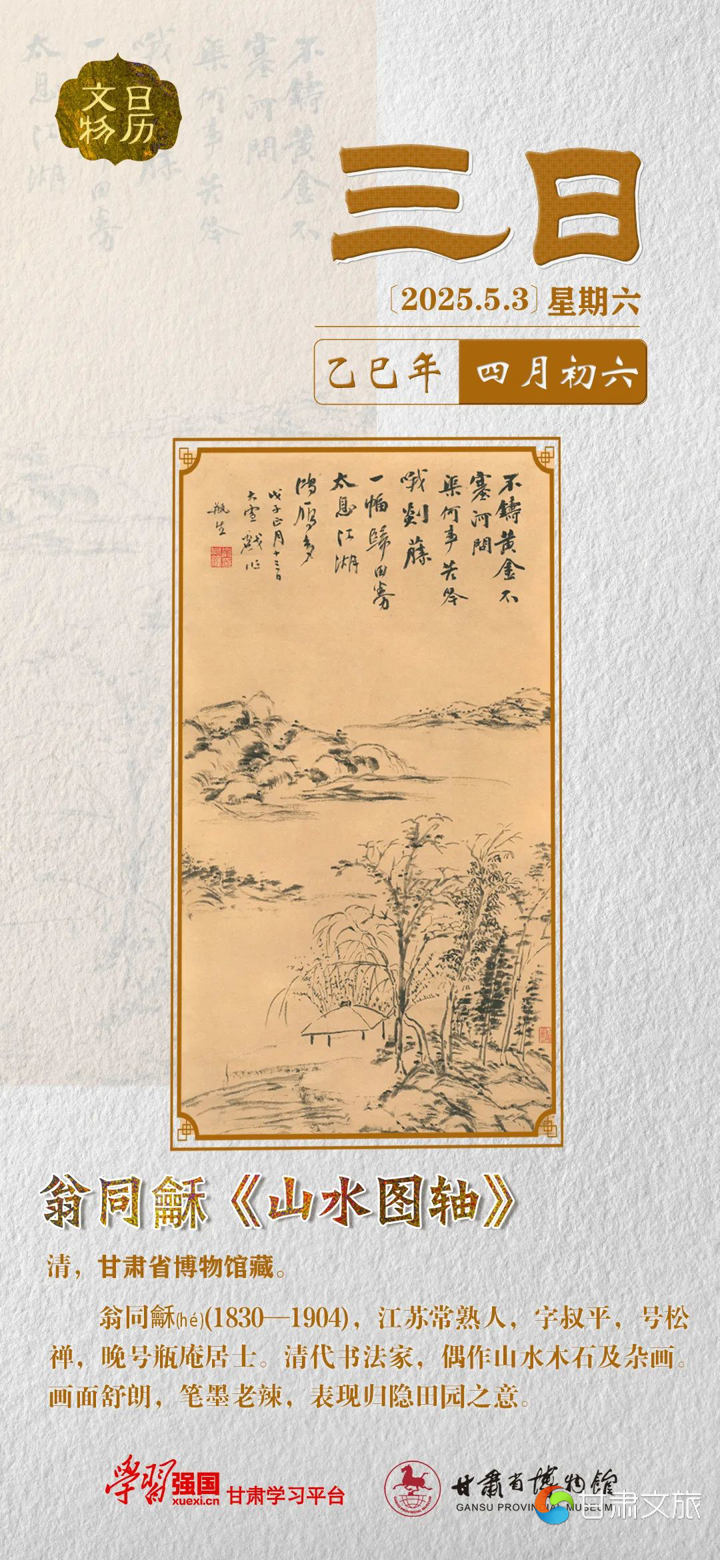 文物
日历
三日
〔2025.5.3〕星期六
乙巳年 四月初六
不鑄黄金不
塞河問
渠何事苦吟
哦剡藤
一幅歸田夢
太息江湖
鴻雁多
戊子正月十三日
大雪戲作
瓶生
翁同龢《山水图轴》
清，甘肃省博物馆藏。
翁同龢(hé)(1830—1904)，江苏常熟人，字叔平，号松
禅，晚号瓶庵居士。清代书法家，偶作山水木石及杂画。
画面舒朗，笔墨老辣，表现归隐田园之意。
学习强国
xuexi.cn
甘肃学习平台
甘肃省博物馆
GANSU PROVINCIAL MUSEUM
甘肃文旅